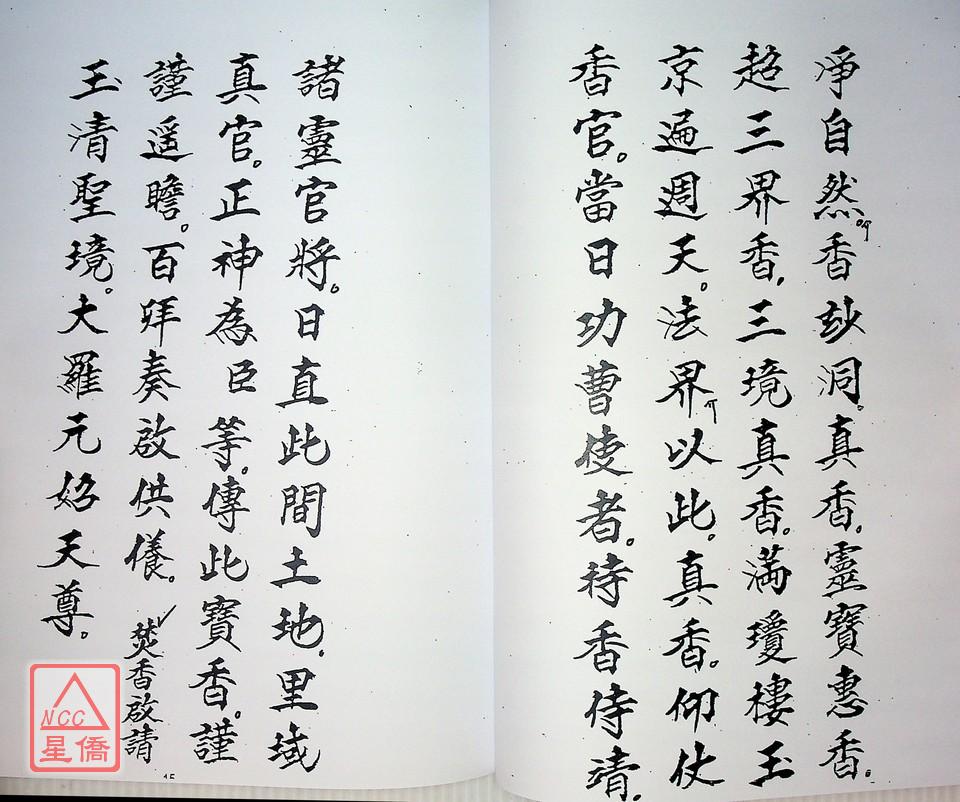 淨自然。吽香玅洞。真香。靈寶惠香。
超三界香。三境真香。滿瓊樓玉
京遍週天。法界吖以此。真香。仰仗
香官。當日功曹使者。待香侍清。
諸靈官將。日直此間土地。里域
真官。正神為臣等。傳此寶香。謹
謹遥瞻。百拜奏啟供養。焚香啟請
玉清聖境。大羅元始天尊。
NCC
星僑
15